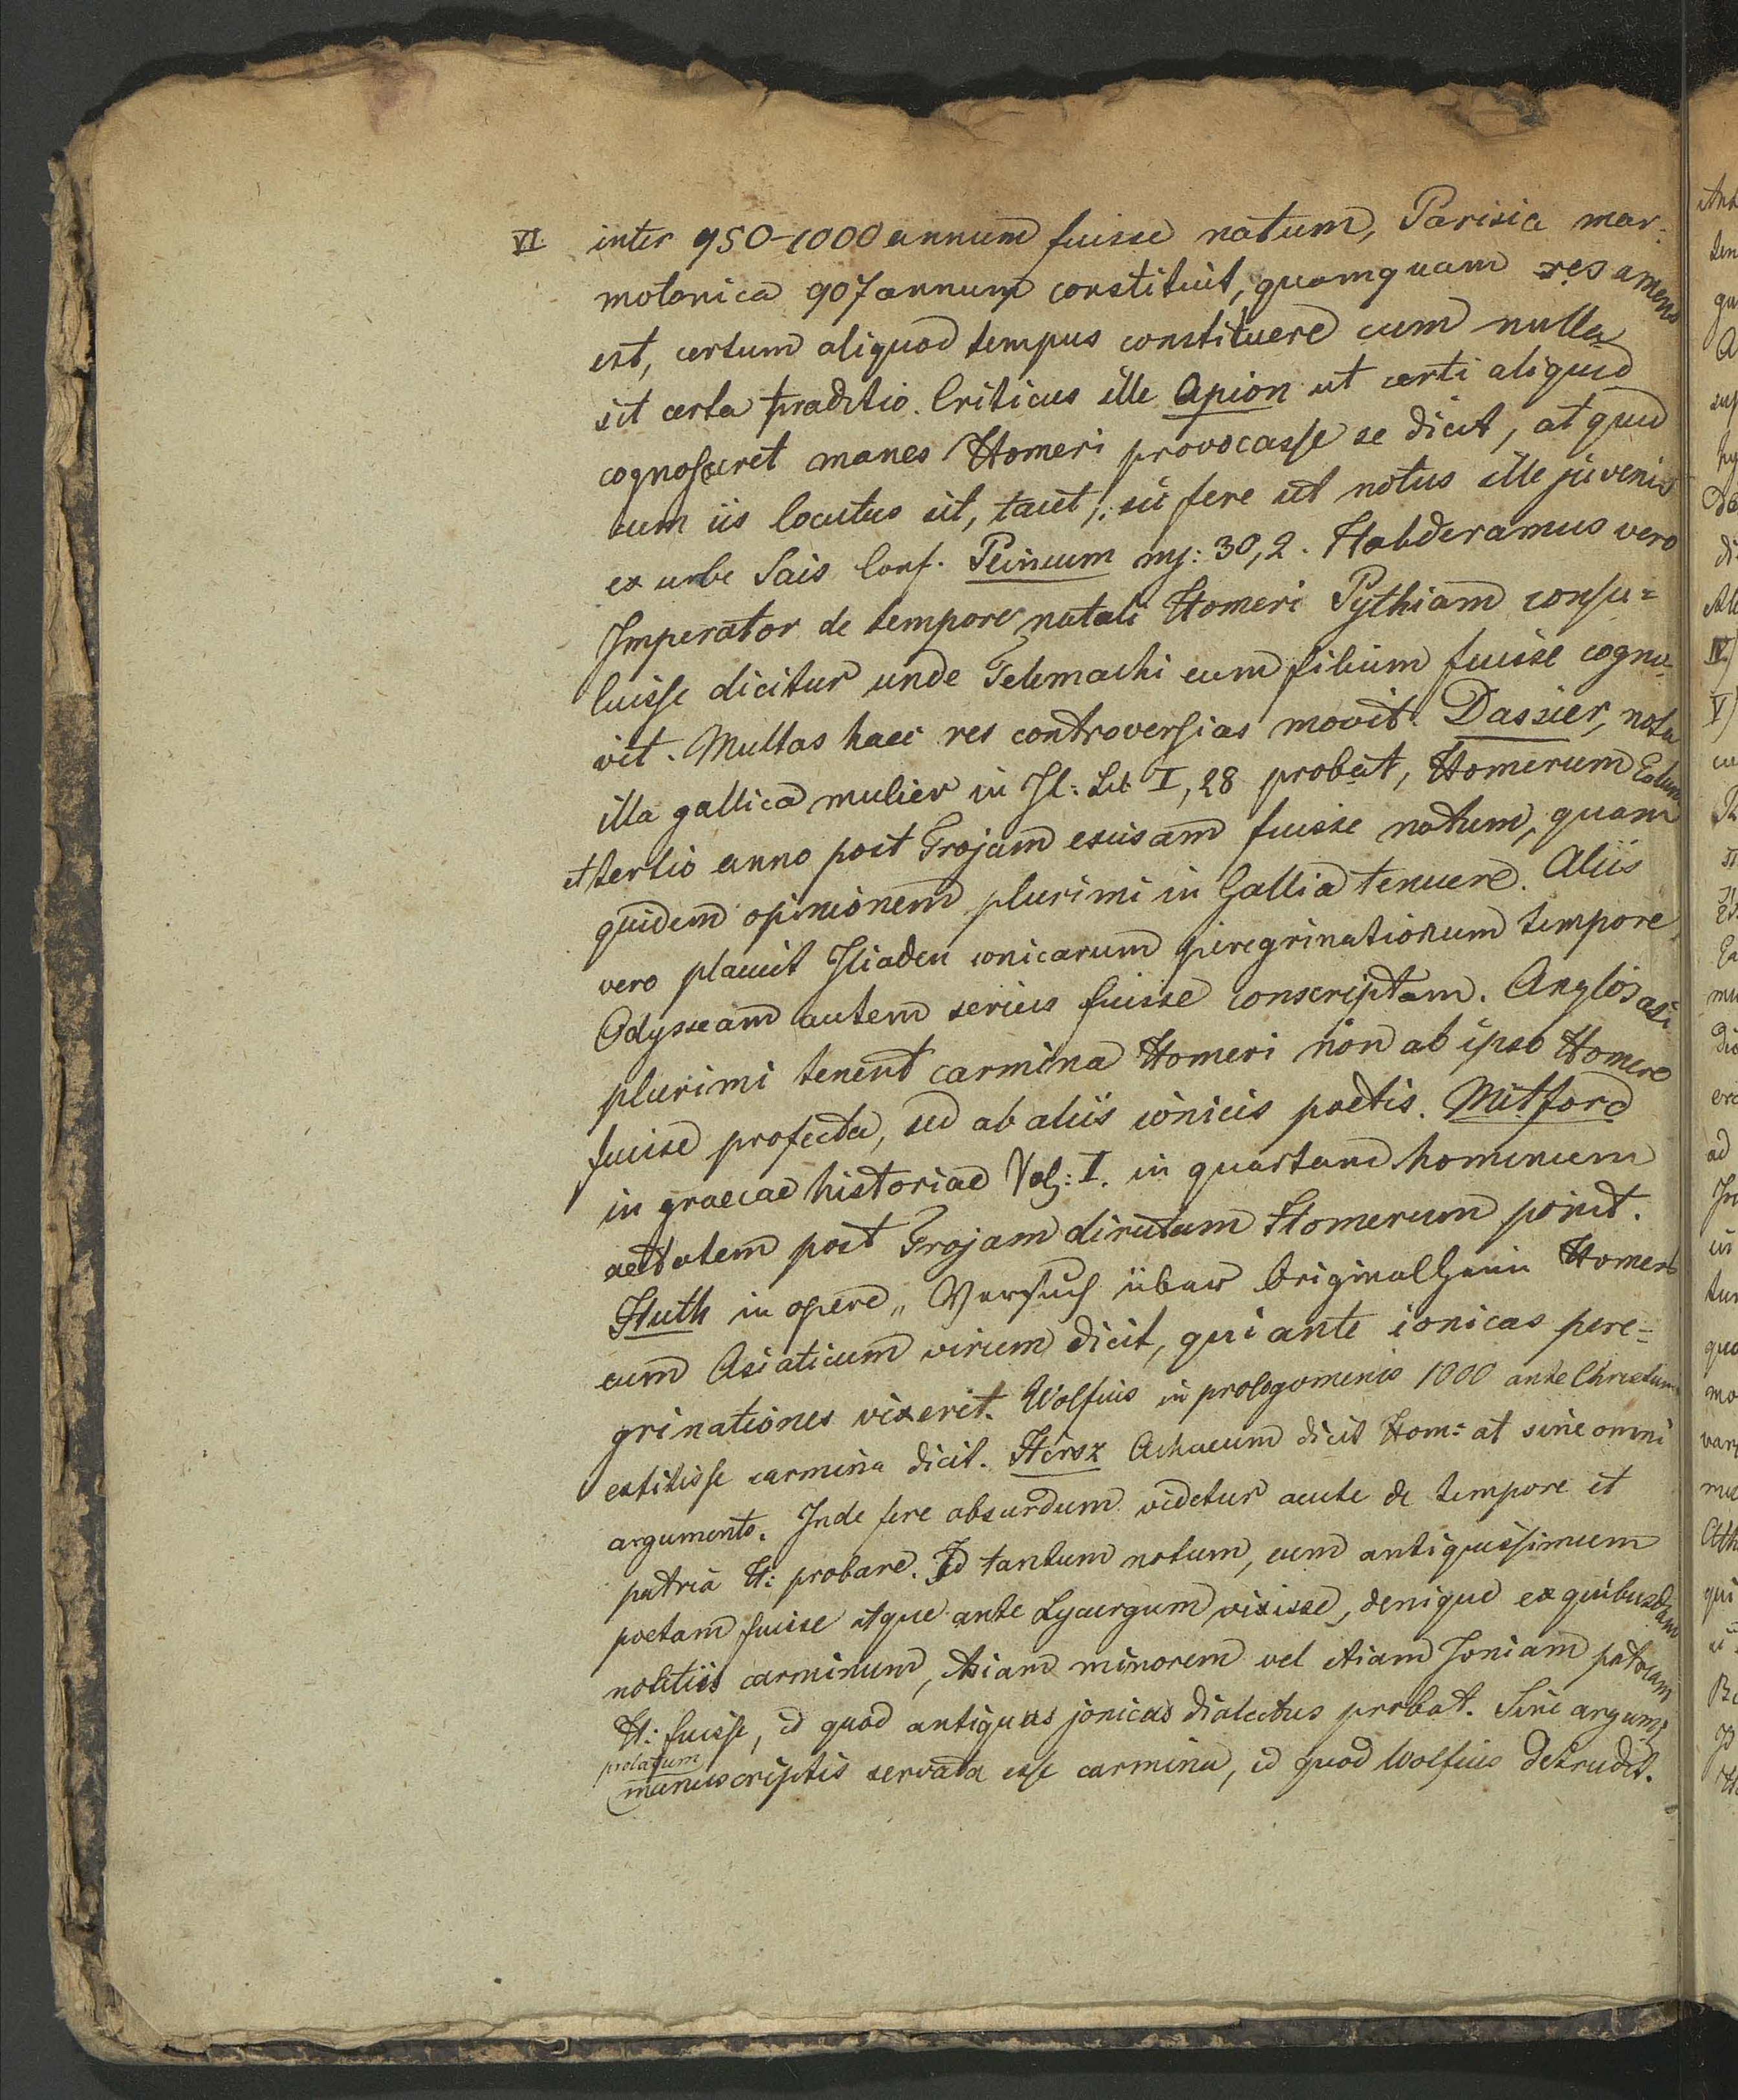 VI inter 950-1000 annum fuisse natum, Parisia mar:
motonica 907 annum constituit, quamquam res amens
est, certum aliquod tempus constituere cum nulla
sit certa traditio. Criticus ille Apion ut certi aliquid
cognosceret manes Homeri provocasse se dicit, at quid
cum iis locutus sit, tacet, sic fere ut notus ille juvenis
ex urbe Sais Conf. 30,2. vero
Imperator de tempore natali Homeri Pythiam consu=
luisse dicitur unde Telemachi eum filium fuisse cogno-
vit. Multas haec res controversias movit. Dassier, nota
illa gallica mulier in Il: Lib I, 28 probat, Homerum
et tertio anno post Trojam excisam fuisse natum, quam
quidem opinionem plurimi in Gallia tenuere. Aliis
vero placuit Iliaden ionicarum peregrinationum tempore,
Odysseam autem serius fuisse conscriptam. Anglos
plurimi tenent carmina Homeri non ab ipso Homero
fuisse profecta, sed ab aliis ionicis poetis. Mitford
in graecae historiae Vol: I. in quartam hominum
aetatem post Trojam dirutam Homerum ponit.
Huth in opere „ Versuch über Originalgenie Homers
eum Asiaticum virum dicit, qui ante ionicas pere=
grinationes vixerit. Wolfius in prologomenis 1000 ante Christum
extitisse carmina dicit. Hirsz Achaeum dicit Hom: at sine omni
argumento. Inde fere absurdum videtur acute de tempore et
patria H: probare. Id tantum notum, eum antiquissimum
poetam fuisse atque ante Lycurgum vixisse, denique ex quibusdam
notitiis carminum, Asiam minorem vel etiam Joniam patriam
H: fuisse, id quod antiquus jonicus dialectus probat. Sine argum:
prolatum
manuscriptis servata esse carmina, id quod Wolfius detrudit.